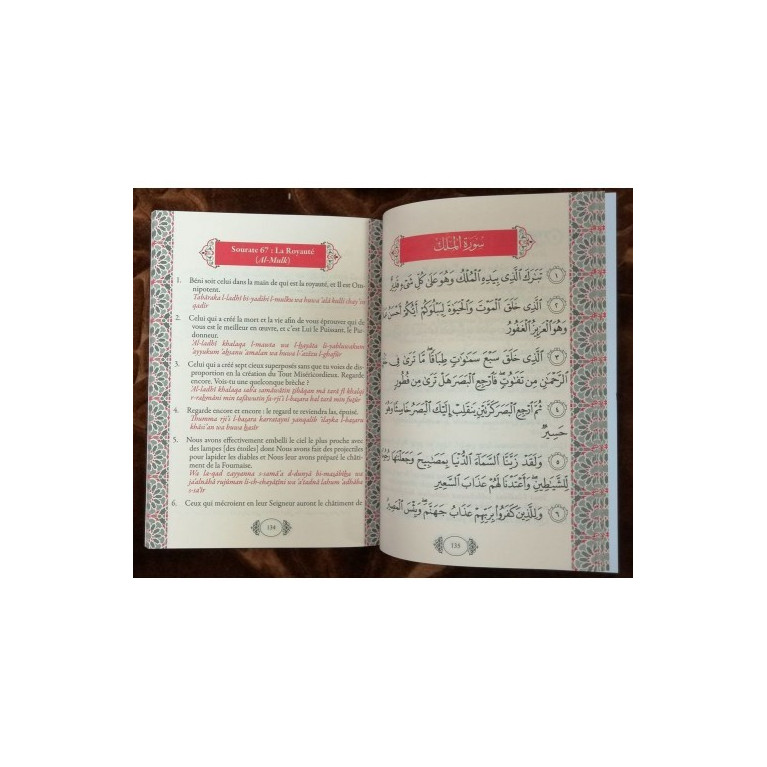 Sourate 67 : La Royauté
(Al-Mulk)
1. Béni soit celui dans la main de qui est la royauté, et Il est Om-
nipotent.
Tabâraka l-ladhî bi-yadihi l-mulku wa huwa 'alâ kulli chay'in
qadîr
2. Celui qui a créé la mort et la vie afin de vous éprouver qui de
vous est le meilleur en œuvre, et c'est Lui le Puissant, le Par-
donneur.
'Al-ladhî khalaqa l-mawta wa l-hayâta li-yabluwakum
'ayyukum 'ahsanu 'amalan wa huwa l-'azîzu l-ghafûr
3. Celui qui a créé sept cieux superposés sans que tu voies de dis-
proportion en la création du Tout Miséricordieux. Regarde
encore. Vois-tu une quelconque brèche ?
'Al-ladhî khalaqa sab'a samâwâtin tibâqan mâ tarâ fî khalqi
r-rahmâni min tafâwutin fa-rji'i l-basara hal tarâ min futûr
4. Regarde encore et encore : le regard te reviendra las, épuisé.
Thumma rji'i l-basara karratayni yanqalib 'ilayka l-basaru
khâsi'an wa huwa hasîr
5. Nous avons effectivement embelli le ciel le plus proche avec
des lampes [des étoiles] dont Nous avons fait des projectiles
pour lapider les diables et Nous leur avons préparé le châti-
ment de la Fournaise.
Wa la-qad zayyanna s-samâ'a d-dunyâ bi-masâbîha wa
ja'alnâhâ rujûman li-ch-chayâtîni wa 'a'tadnâ lahum 'adhâba
s-sa'îr
6. Ceux qui mécroient en leur Seigneur auront le châtiment de
134
سُورَةُ الْمُلْكِ
١ تَبَٰرَكَ ٱلَّذِى بِيَدِهِ ٱلْمُلْكُ وَهُوَ عَلَىٰ كُلِّ شَىْءٍ قَدِيرٌ
٢ ٱلَّذِى خَلَقَ ٱلْمَوْتَ وَٱلْحَيَوٰةَ لِيَبْلُوَكُمْ أَيُّكُمْ أَحْسَنُ
وَهُوَ ٱلْعَزِيزُ ٱلْغَفُورُ
٣ ٱلَّذِى خَلَقَ سَبْعَ سَمَٰوَٰتٍ طِبَاقًا ۖ مَّا تَرَىٰ فِى
ٱلرَّحْمَٰنِ مِن تَفَٰوُتٍ ۖ فَٱرْجِعِ ٱلْبَصَرَ هَلْ تَرَىٰ مِن فُطُورٍ
٤ ثُمَّ ٱرْجِعِ ٱلْبَصَرَ كَرَّتَيْنِ يَنقَلِبْ إِلَيْكَ ٱلْبَصَرُ خَاسِئًا وَهُوَ
حَسِيرٌ
٥ وَلَقَدْ زَيَّنَّا ٱلسَّمَآءَ ٱلدُّنْيَا بِمَصَٰبِيحَ وَجَعَلْنَٰهَا
لِّلشَّيَٰطِينِ ۖ وَأَعْتَدْنَا لَهُمْ عَذَابَ ٱلسَّعِيرِ
٦ وَلِلَّذِينَ كَفَرُوا۟ بِرَبِّهِمْ عَذَابُ جَهَنَّمَ ۖ وَبِئْسَ ٱلْمَصِيرُ
135